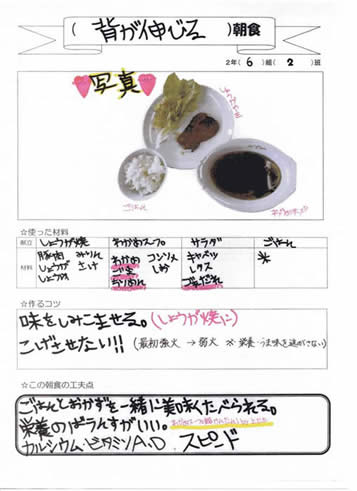 ( 背が伸びる )朝食
2年( 6 )組( 2 )班
写真
ごはん
☆使った材料
献立 しょうが焼 わかめスープ サラダ ごはん
材料 豚肉 みりん わかめ コンソメ キャベツ 米
しょうが さけ ごま しお レタス
しょうゆ ごまだれ
☆作るコツ
味をしみこませる。(しょうが焼に)
こげさせない!! (最初強火 → 弱火 栄養・うま味を逃がさない)
☆この朝食の工夫点
ごはんとおかずを一緒に美味しくたべられる。
栄養のバランスがいい。
カルシウム・ビタミンA,D